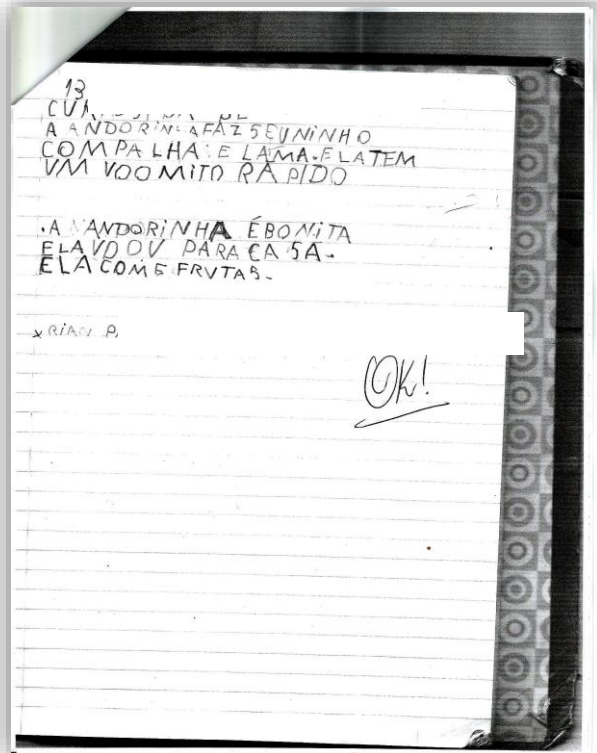 13
A ANDORINHA FAZ SEU NINHO
COM PALHA E LAMA. ELA TEM
UM VOO MITO RÁPIDO
.A ANDORINHA É BONITA
ELA VOOU PARA CASA.
ELA COME FRUTAS.
X RIAN P.
OK!